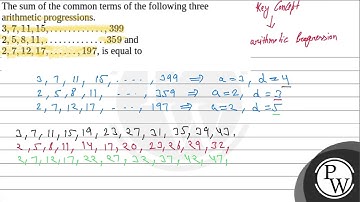 The sum of the common terms of the following three
arithmetic progressions.
3, 7, 11, 15, . . . . . . . . . . . . , 399
2, 5, 8, 11, . . . . . . . . . . . . . , 359 and
2, 7, 12, 17, . . . . . . . , 197, is equal to
Key Concept
↓
arithmetic Progression
3, 7, 11, 15, ...... , 399 ⇒ a=3, d=4
2, 5, 8, 11, ..... , 359 ⇒ a=2, d=3
2, 7, 12, 17, ..... , 197 ⇒ a=2, d=5
3, 7, 11, 15, 19, 23, 27, 31, 35, 39, 43,
2, 5, 8, 11, 14, 17, 20, 23, 26, 29, 32,
2, 7, 12, 17, 22, 27, 32, 37, 42, 47,
PW